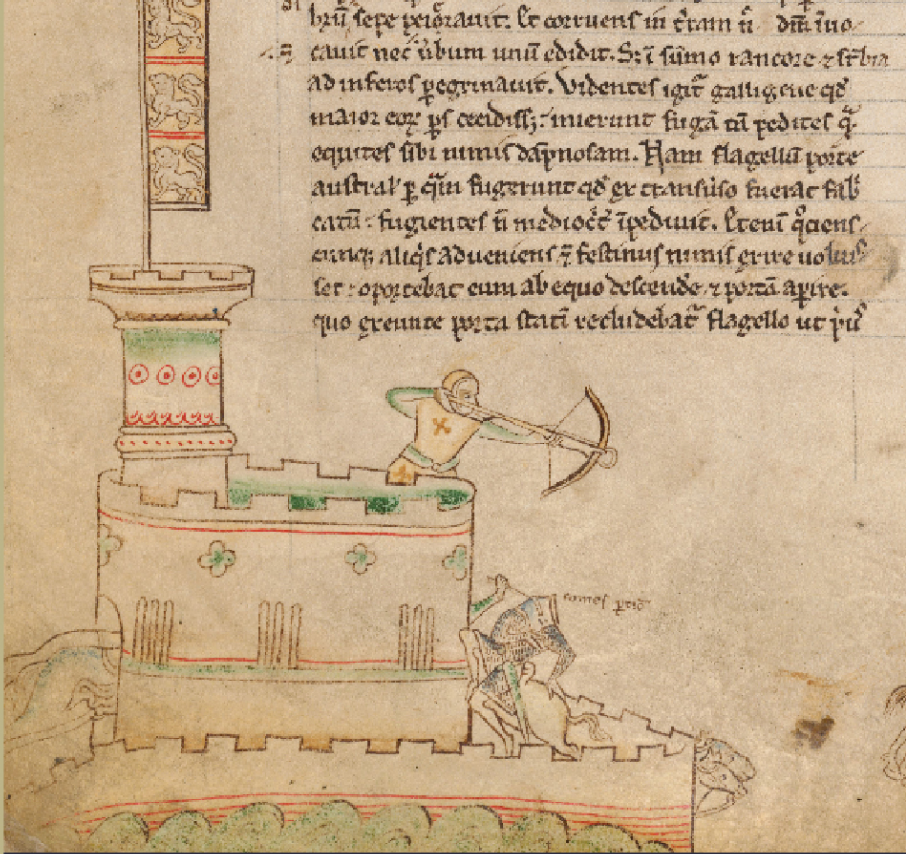 brū sepe peiorauit. Et corruens in t̄ram n̄ dm̄ īuo
cauit nec ūbum unū edidit. S; ī sūmo rancore ⁊
ad inferos ꝑegrinauit. Videntes igit̄ galligene qd̄
maior eoꝝ ꝑs cecidiss; inierunt fugā tā pedites q̄
equites sibi nimis dāpnosam. Nam flagellū porte
austral' ꝑ q̄m fugerunt qd̄ ex transūso fuerat fab̄
catū: fugientes n̄ mediocr̄ īpediuit. Etenī q̄ciens
cunq; aliq̄s adueniens ⁊ festinus nimis exire uoluis
set: oportebat eum ab equo descende ⁊ portā apire.
quo exeunte porta statī recludebat̄ flagello ut p̄us
comes ꝑtic̄